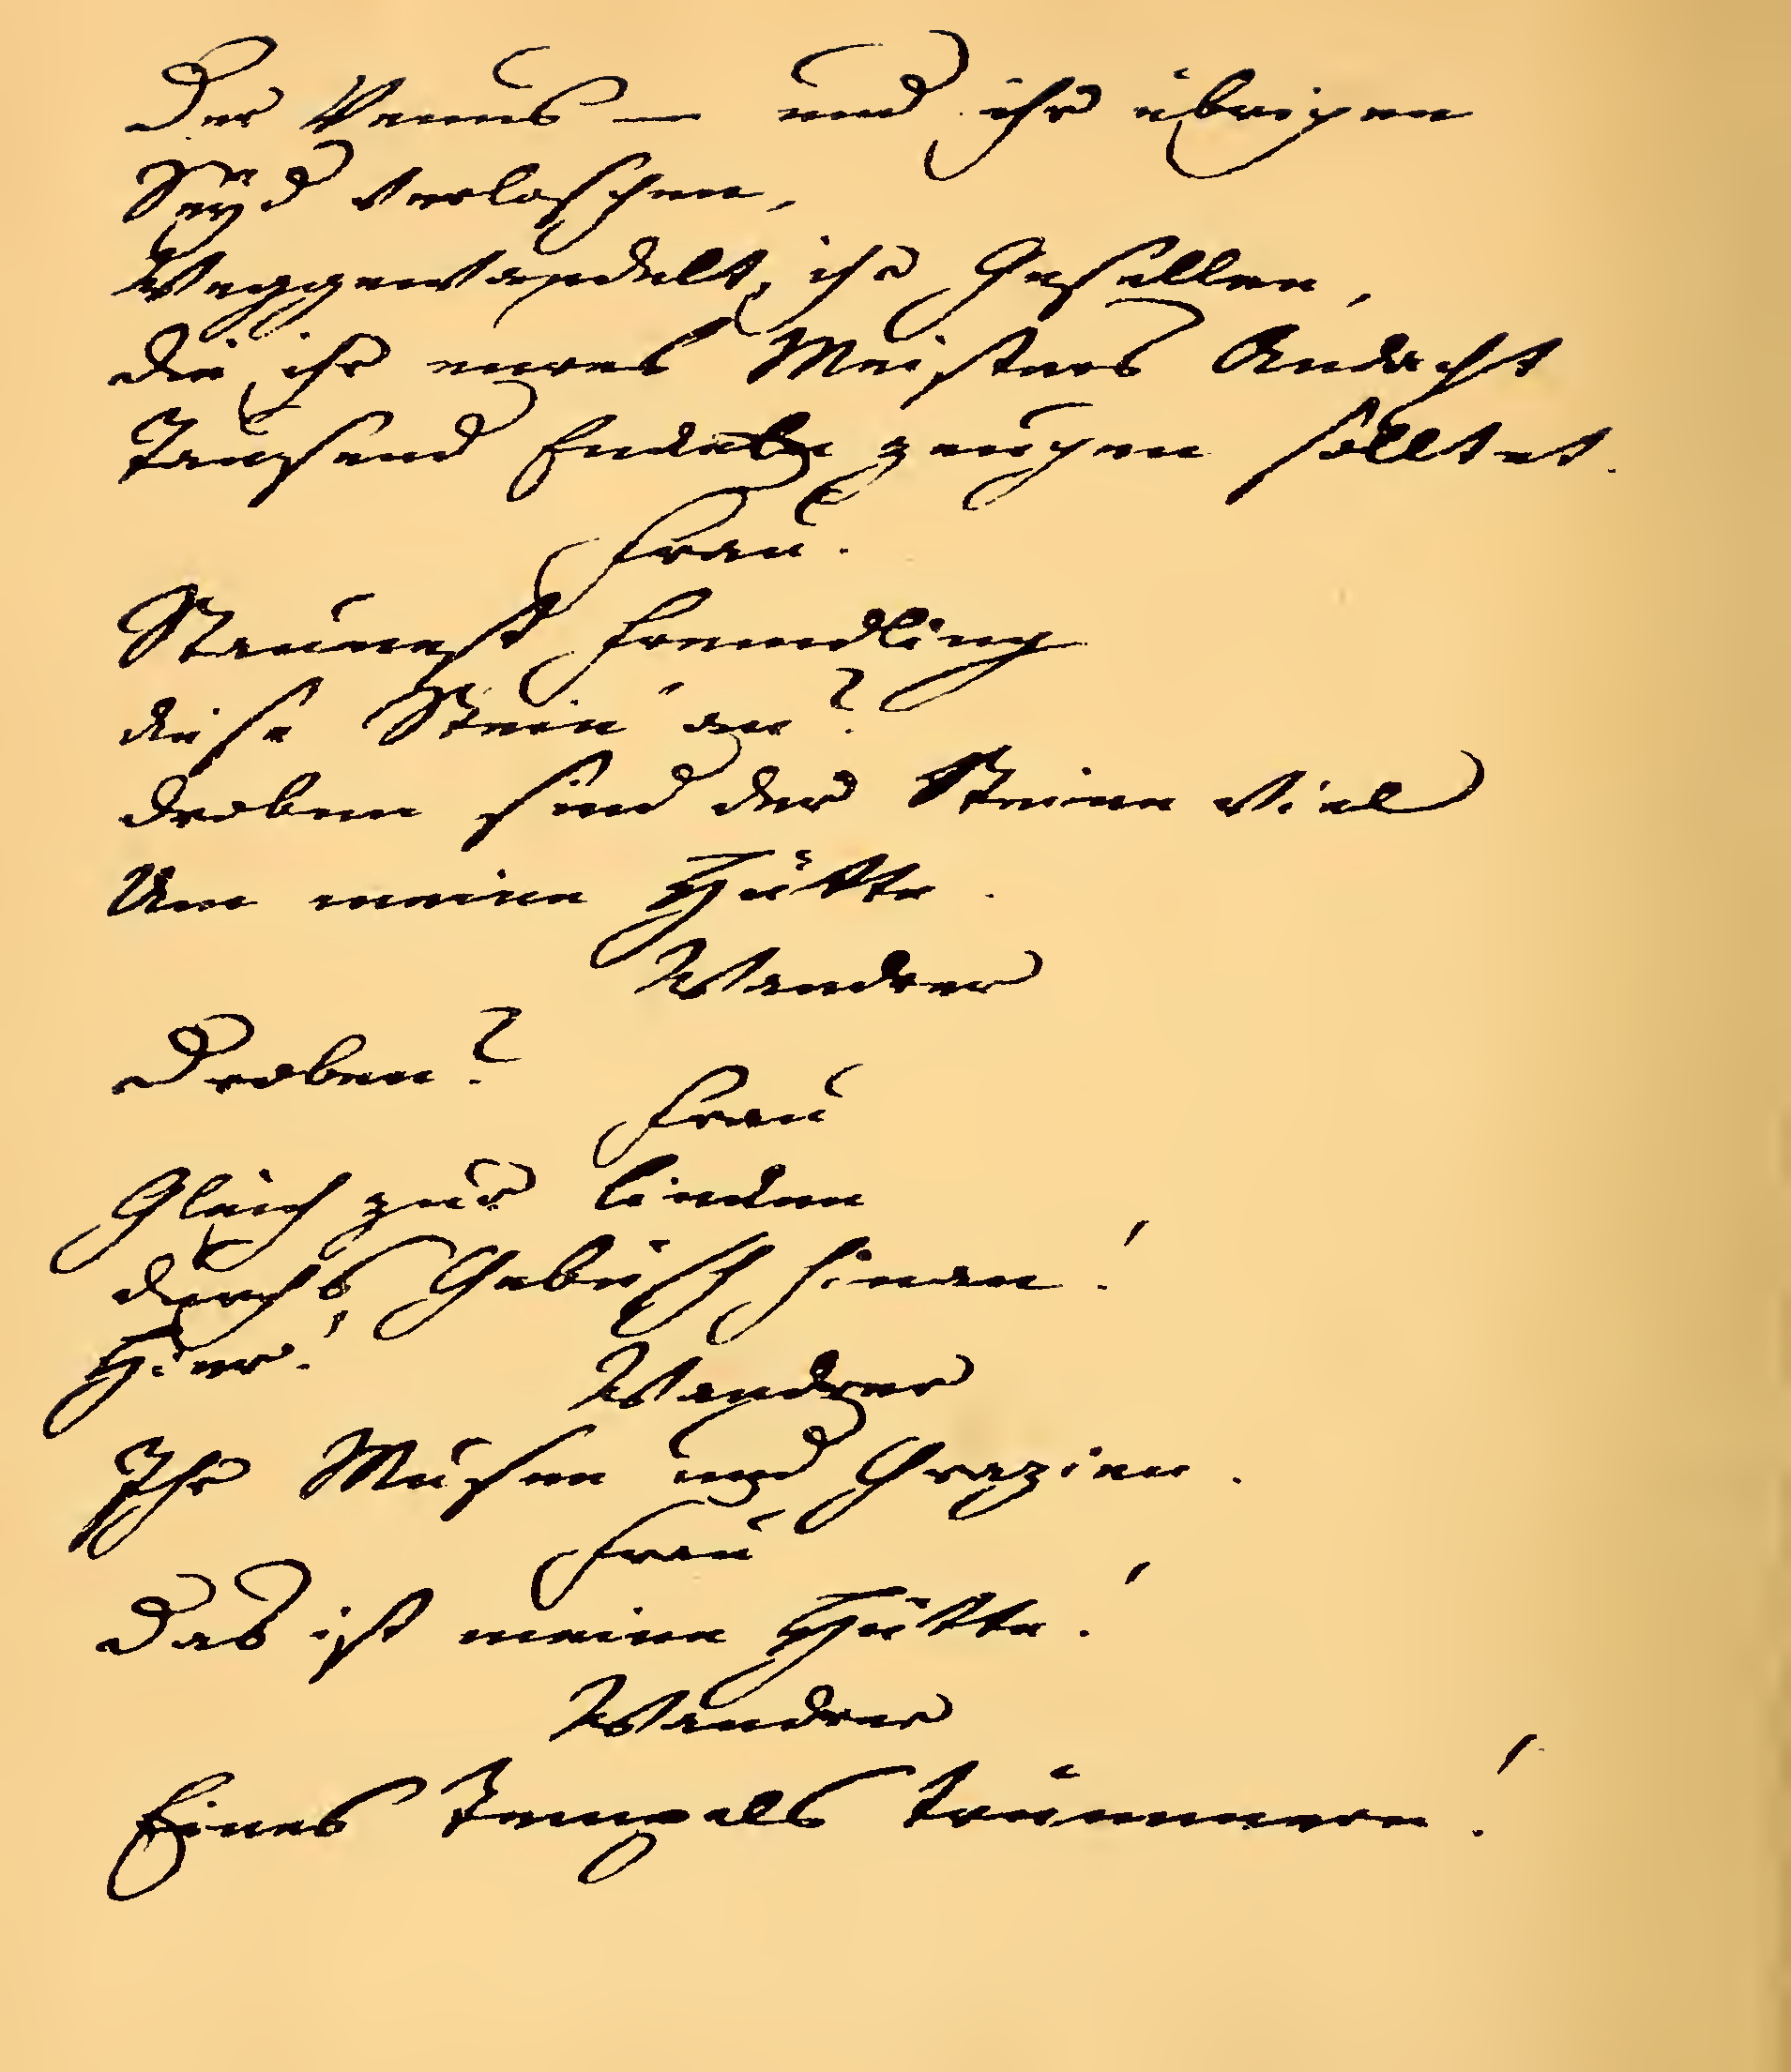 Der Venus — und ihr übrigen
Seyd verloschen,
Weggewandelt, ihr Gesellen,
die ihr eures Meisters Andacht
Tausend Enckeln zeugen solltet.
Frau.
Staunest Fremdling
diese Stein' an?
droben sind der Steine viel
Um meine Hütte.
Wandrer
Droben?
Frau
Gleich zur lincken
durchs Gebüsch hinan!
Hier!
Wandrer
Ihr Musen und Grazien.
Frau
Das ist meine Hütte!
Wandrer
Eines Tempels Trümmern!